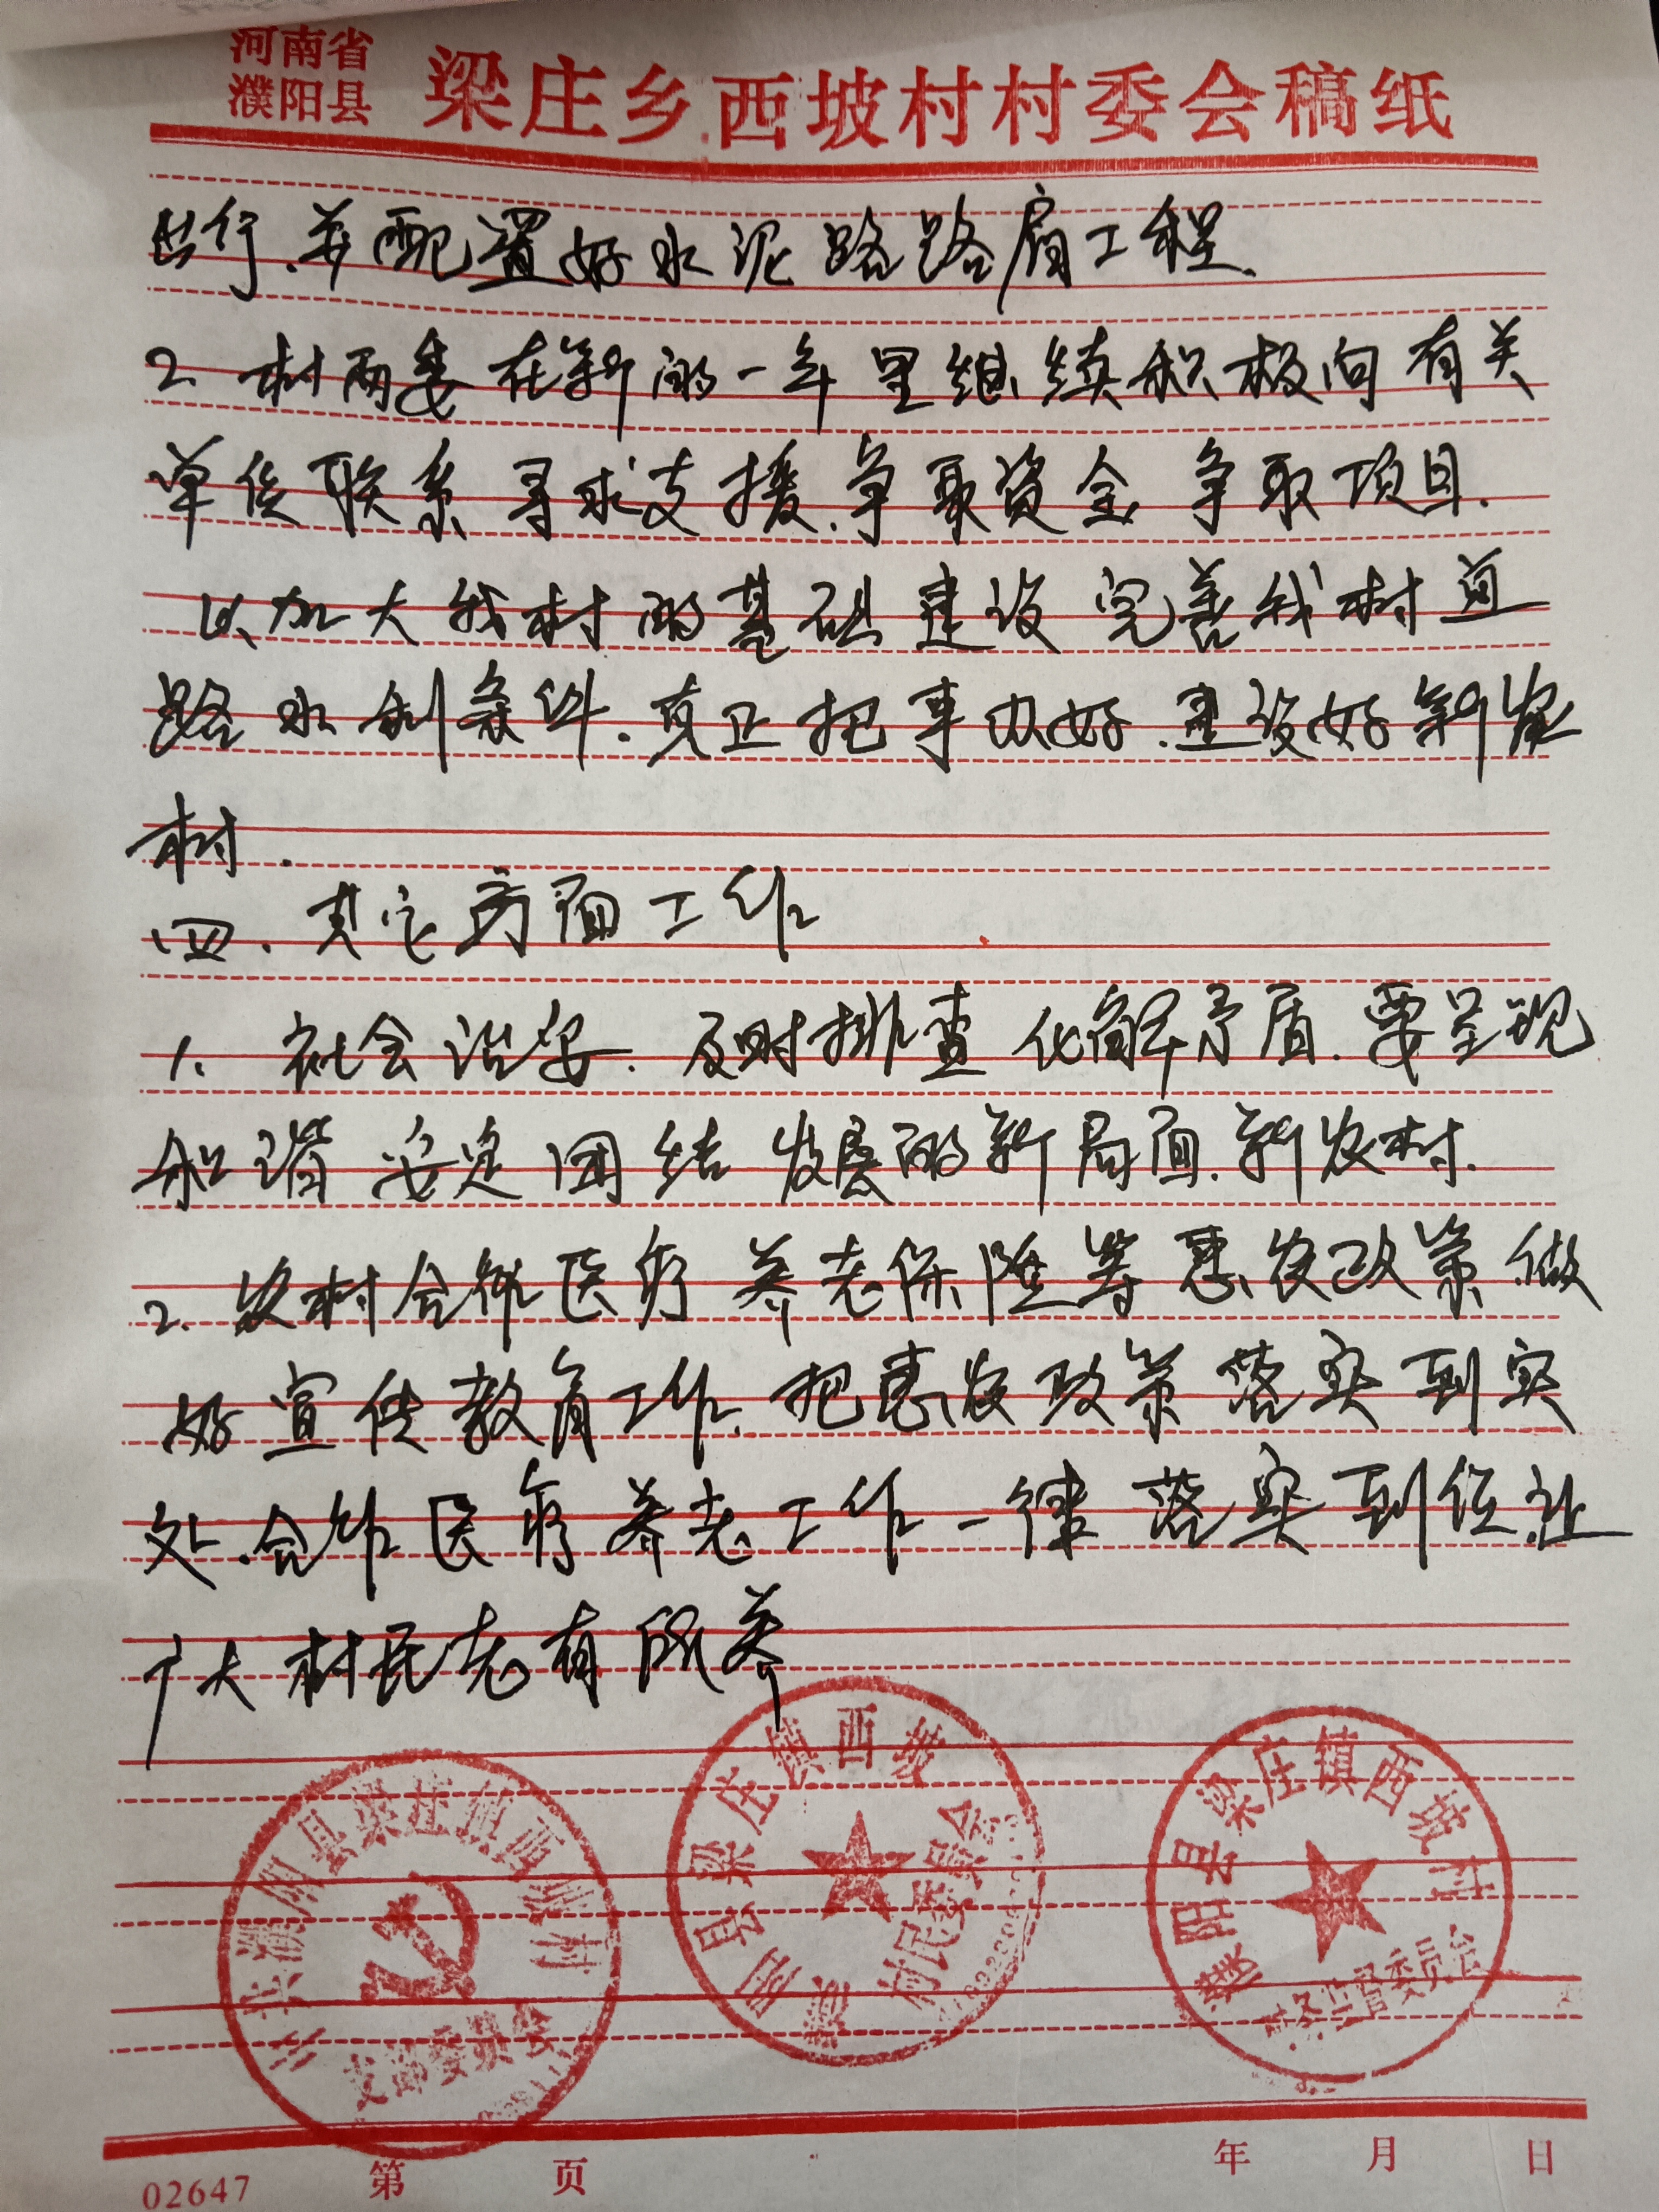 河南省
濮阳县
梁庄乡西坡村村委会稿纸
出行.并配置好水泥路路肩工程.
2. 村两委在新的一年里继续积极向有关
单位联系寻求支援.争取资金 争取项目.
以加大我村的基础建设 完善我村道
路水利条件.真正把事办好.建设好新农
村.
四、其它方面工作
1、社会治安.及时排查化解矛盾.要呈现
和谐 安定团结发展的新局面.新农村.
2.农村合作医疗 养老保险等惠农政策.做
好宣传教育工作.把惠农政策落实到实
处.合作医疗养老工作一律落实到位.让
广大村民老有所养
濮阳县梁庄镇西坡村
支部委员会
濮阳县梁庄镇西坡
村民委员会
濮阳县梁庄镇西坡村
村务监督委员会
02647 第 页 年 月 日